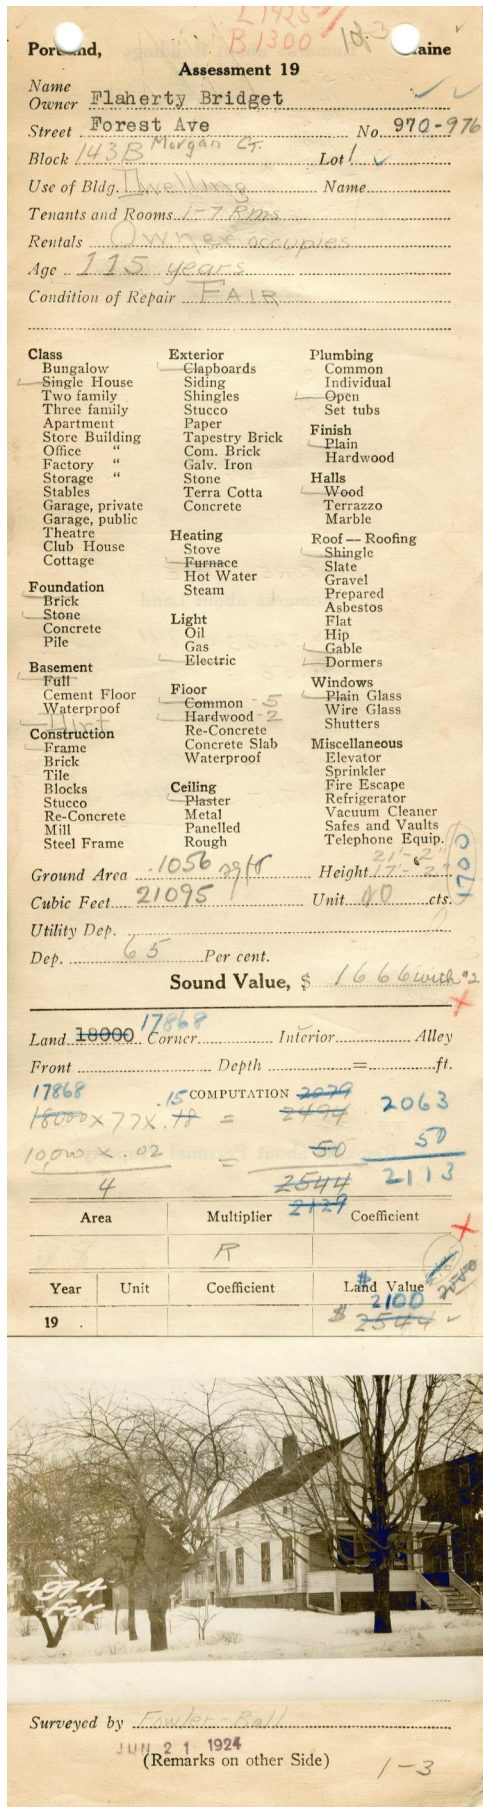 L1425
B.1300 1 of 3
Portland, Maine
Assessment 19
Name
Owner Flaherty Bridget
Street Forest Ave No. 970-976
Block 143B Morgan CT. Lot 1
Use of Bldg. Dwelling Name
Tenants and Rooms 1-7 Rms
Rentals Owner occupies
Age 115 years
Condition of Repair FAIR
Class
Bungalow
Single House
Two family
Three family
Apartment
Store Building
Office "
Factory "
Storage "
Stables
Garage, private
Garage, public
Theatre
Club House
Cottage
Foundation
Brick
Stone
Concrete
Pile
Basement
Full
Cement Floor
Waterproof
Dirt
Construction
Frame
Brick
Tile
Blocks
Stucco
Re-Concrete
Mill
Steel Frame
Exterior
Clapboards
Siding
Shingles
Stucco
Paper
Tapestry Brick
Com. Brick
Galv. Iron
Stone
Terra Cotta
Concrete
Heating
Stove
Furnace
Hot Water
Steam
Light
Oil
Gas
Electric
Floor
Common - 5
Hardwood - 2
Re-Concrete
Concrete Slab
Waterproof
Ceiling
Plaster
Metal
Panelled
Rough
Plumbing
Common
Individual
Open
Set tubs
Finish
Plain
Hardwood
Halls
Wood
Terrazzo
Marble
Roof — Roofing
Shingle
Slate
Gravel
Prepared
Asbestos
Flat
Hip
Gable
Dormers
Windows
Plain Glass
Wire Glass
Shutters
Miscellaneous
Elevator
Sprinkler
Fire Escape
Refrigerator
Vacuum Cleaner
Safes and Vaults
Telephone Equip.
1700
21'-2"
Ground Area 1056 sq ft Height 17'-2"
Cubic Feet 21095 Unit cts.
Utility Dep.
Dep. 65 Per cent.
Sound Value, $ 1666 with #2
17868
Land 18000 Corner Interior Alley
Front Depth = ft.
17868 15 COMPUTATION 2079 2063
18000 x 77 x .18 = 2494
10,000 x .02 = 50 50
4 2544 2113
2129
Area Multiplier Coefficient
R
Year Unit Coefficient Land Value
$ 2100
19 . $ 2544
974
For
Surveyed by Fowler - Ball
JUN 21 1924
(Remarks on other Side)
1-3